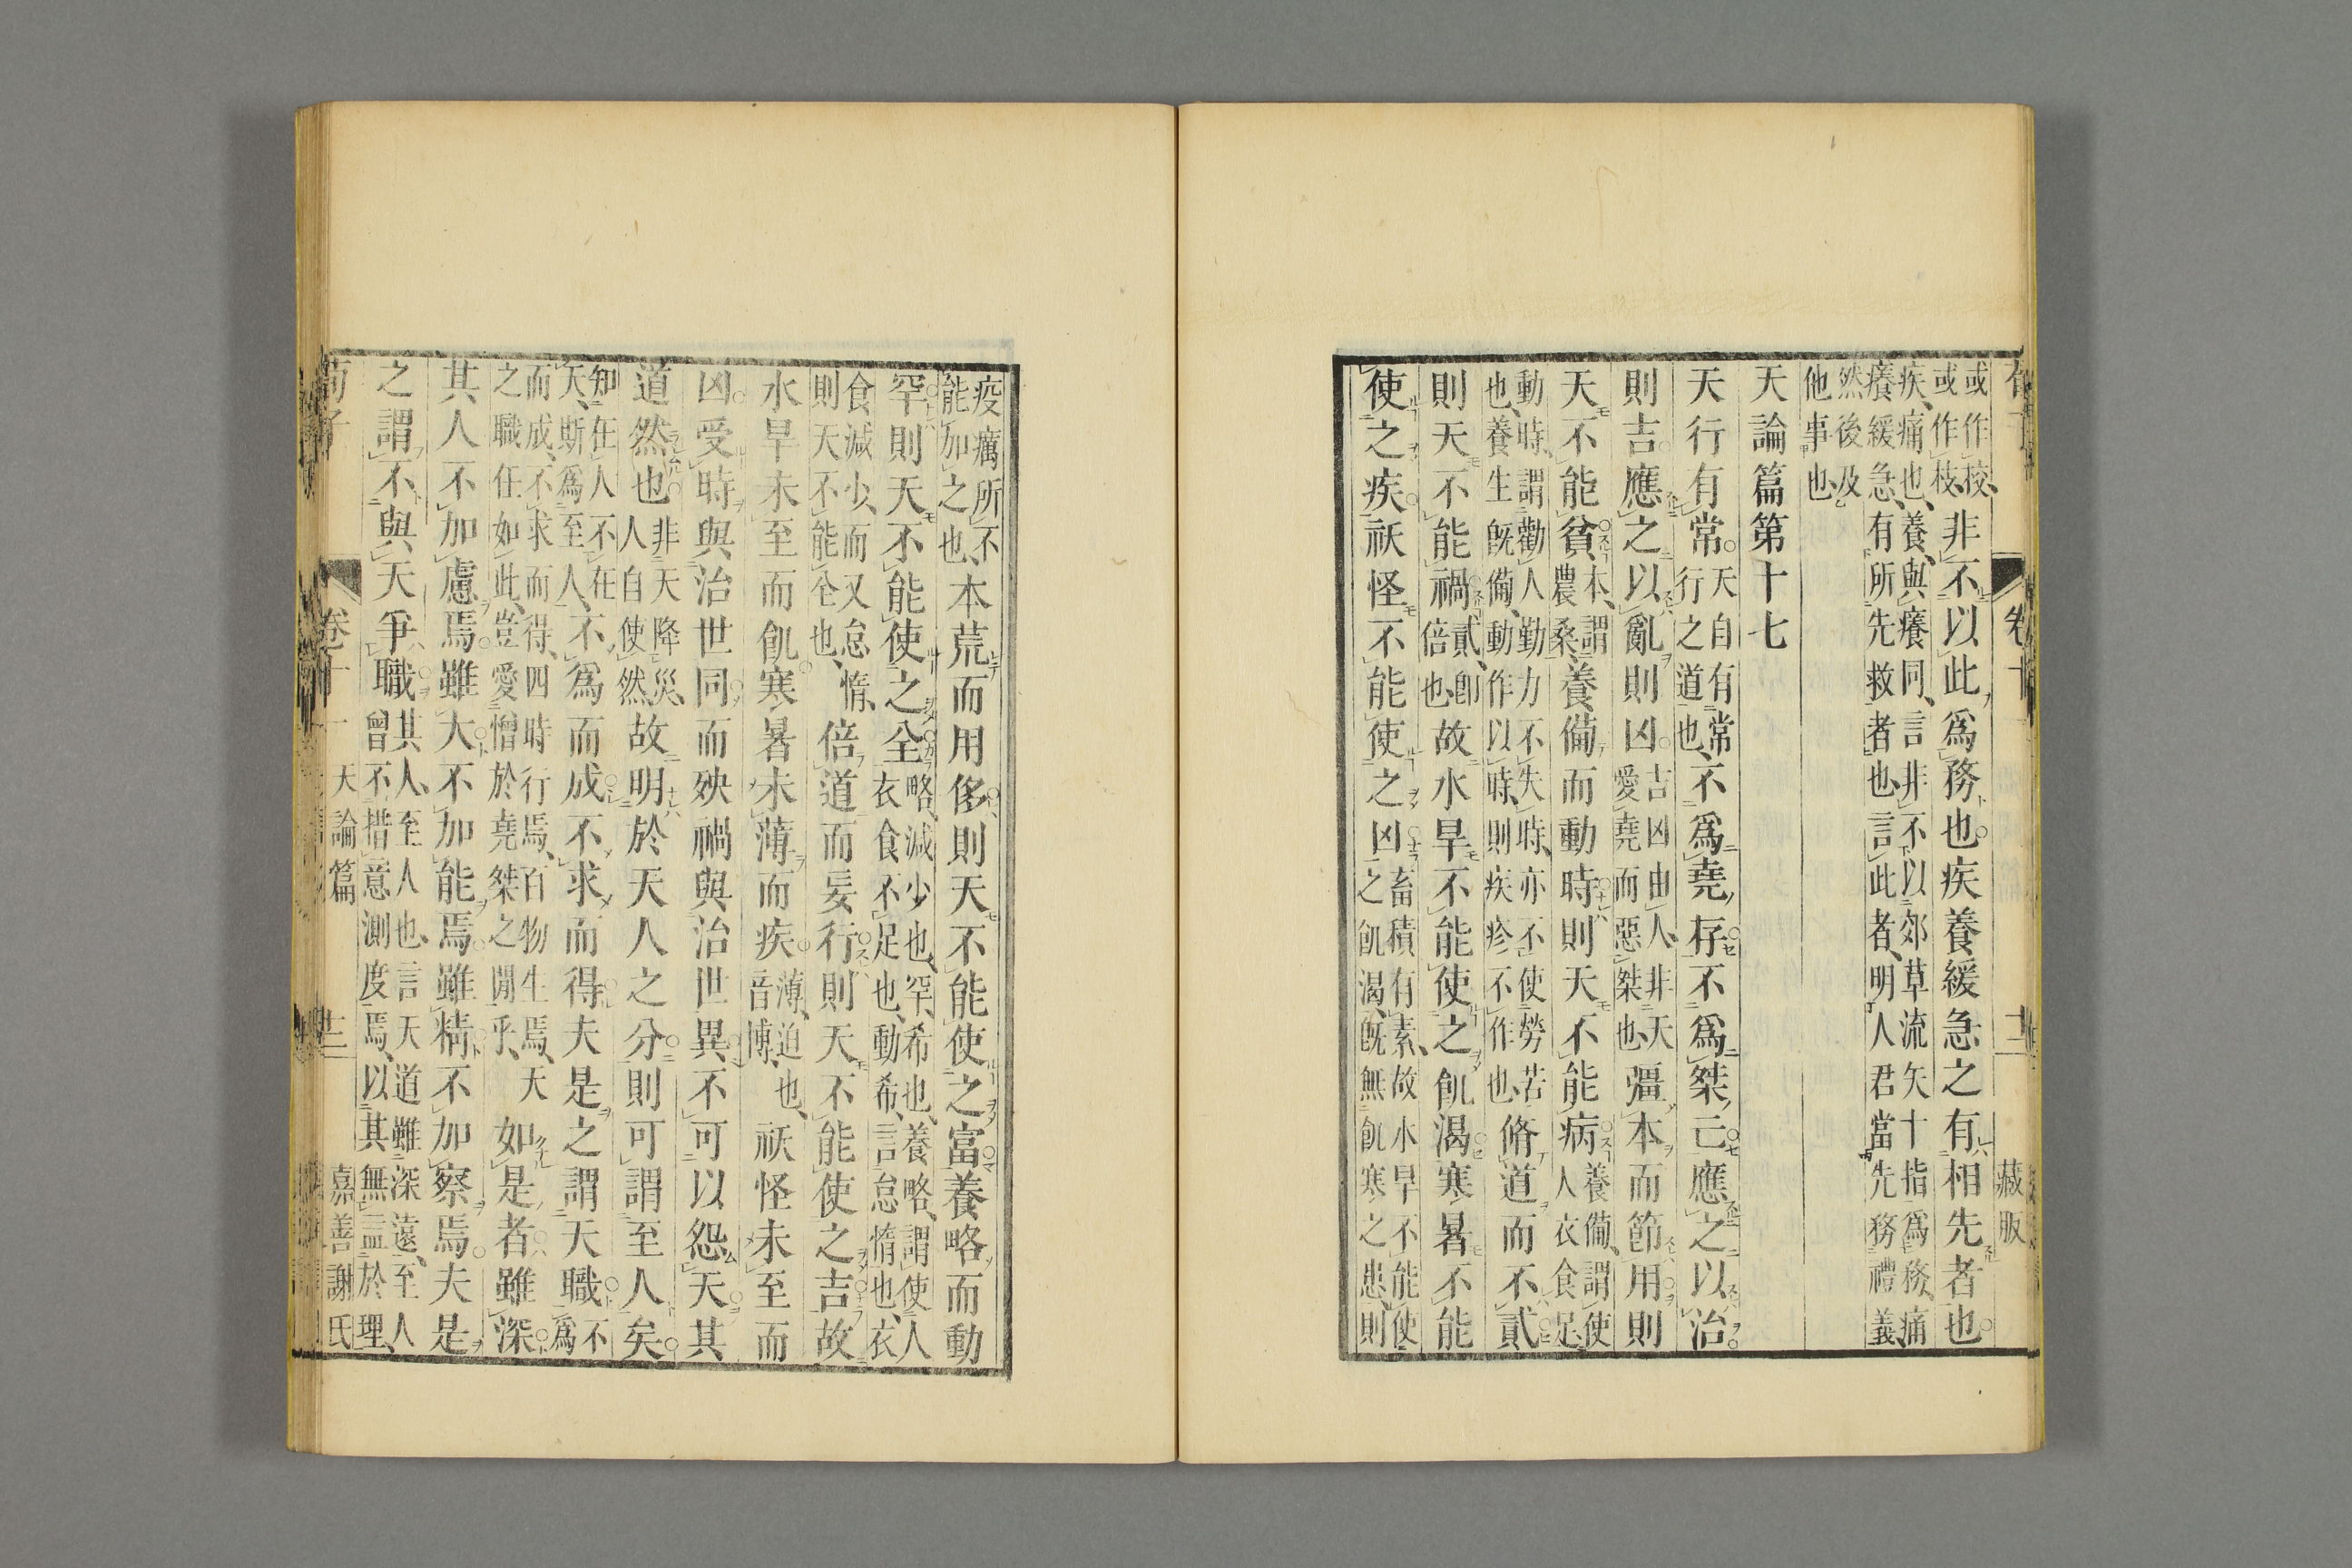 藏版
或作校、或作枝、非不以此爲務也疾養緩急之有相先者也
疾、痛也、養、與癢同、言非不以郊草流矢十指爲務、痛
癢緩急、有所先救者也、言此者、明人君當先務禮義
然後及
他事也、
天論篇第十七
天行有常天自有常行之道也、不爲堯存不爲桀亡應之以治
則吉應之以亂則凶吉凶由人、非天愛堯而惡桀也、彊本而節用則
天不能貧本、謂農桑、養備而動時則天不能病養備、謂使人衣食足
動時、謂勸人勤力不失時、亦不使勞苦也、養生既備、動作以時、則疾疹不作也、脩道而不貳
則天不能禍貳、即倍也、故水旱不能使之飢渴寒暑不能
使之疾祅怪不能使之凶畜積有素、故水旱不能使之飢渴、既無飢寒之患、則
疫癘所不能加之也、本荒而用侈則天不能使之富養略而動
罕則天不能使之全略、減少也、罕、希也、養略、謂使人衣食不足也、動希、言怠惰也、衣
食減少、而又怠惰、則天不能全也、倍道而妄行則天不能使之吉故
水旱未至而飢寒暑未薄而疾薄、迫也、音博、祅怪未至而
凶受時與治世同而殃禍與治世異不可以怨天其
道然也非天降災、人自使然故明於天人之分則可謂至人矣
知在人不在天、斯爲至人、不爲而成不求而得夫是之謂天職不爲
而成、不求而得、四時行焉、百物生焉、天之職任如此、豈愛憎於堯桀之閒乎、如是者雖深
其人不加慮焉雖大不加能焉雖精不加察焉夫是
之謂不與天爭職其人、至人也、言天道雖深遠、至人曾不措意測度焉、以其無益於理、
荀子 卷十一 天論篇 十三 嘉善謝氏